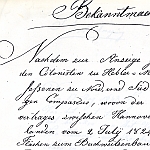 Bekanntma
Nachdem zur Anzeige
den Colonisten zu Hebler
saßenen zu Nord und Süd
gen Campardus, wovon der
vertrages zwischen Hannover
landen vom 2 July 182
Flecken zum Buchweitzenbau